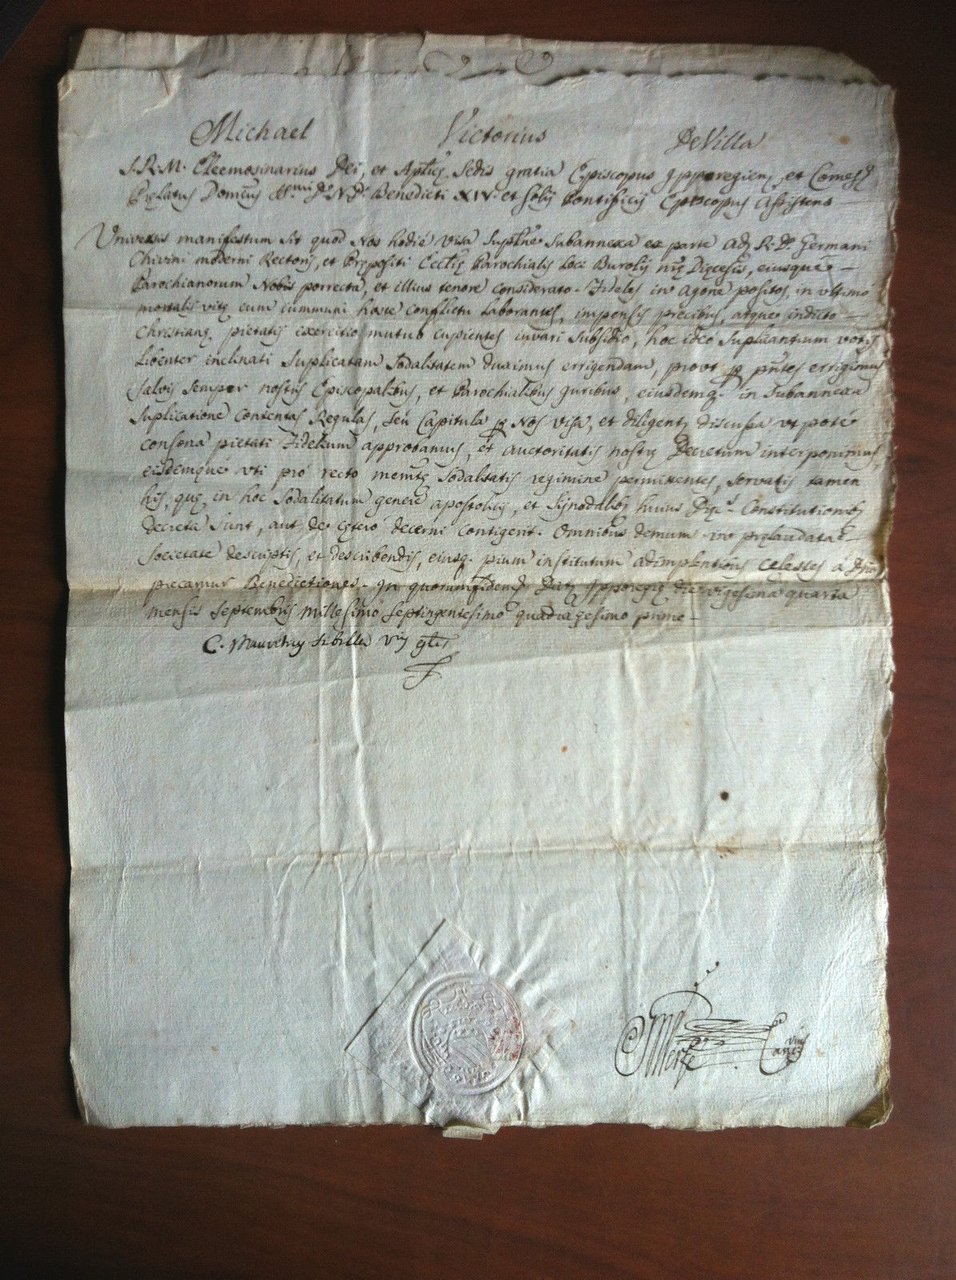 Michael Victorius De Villa
S.R.M. Eleemosinarius Dei, et Aplicę Sedis gratia Episcopus Ipporegien, et Comes
Pręlatus Domcus Ssmi D. N. D. Benedicti XIV. et Solij Pontificij Episcopus Assistens
Universis manifestum sit quod Nos hodie visa Suplne Subannexa ex parte Adm R.D. Germani
Chivini moderni Rectoris, et Prępositi Ecclię Parochialis loci Burolij nrę Diocesis, eiusque
Parochianorum Nobis porrecta, et illius tenore considerato. Fideles in Agone positos, in ultimo
mortalis vitę cum communi hoste conflictu laborantes, impensis precibus, atque indicto
Christianę pietatis exercitio mutuo cupientes iuvari subsidio, hoc ideo Suplicantium votis
Libenter inclinati Suplicatam Sodalitatem duximus errigendam, prout p pntes errigimus
salvis semper nostris Episcopalibus, et Parochialibus juribus, eiusdemq. in Subannexa
Suplicatione contentas Regulas, seu Capitula p Nos visa, et diligentr discussa ut pote
consona pietati Fidelium approbamus, et auctoritatis nostrę Decretum interponimus,
eisdemque uti pro recto memtę Sodalitatis regimine permittentes, servatis tamen
his, quę in hoc Sodalitatum genere apostolicis, et Sijnodalib huius Dięcs. Constitutionib
decreta sunt, aut de cętero decerni contigerit. Omnibus demum in pręlaudata
Societate descriptis, et describendis, eiusq. pium institutum adimplentibus celestes a Dno
precamur Benedictiones. In quorum fidem Dat Ipporegię die vigesima quarta
mensis Septembris millesimo septingentesimo quadragesimo primo
C.